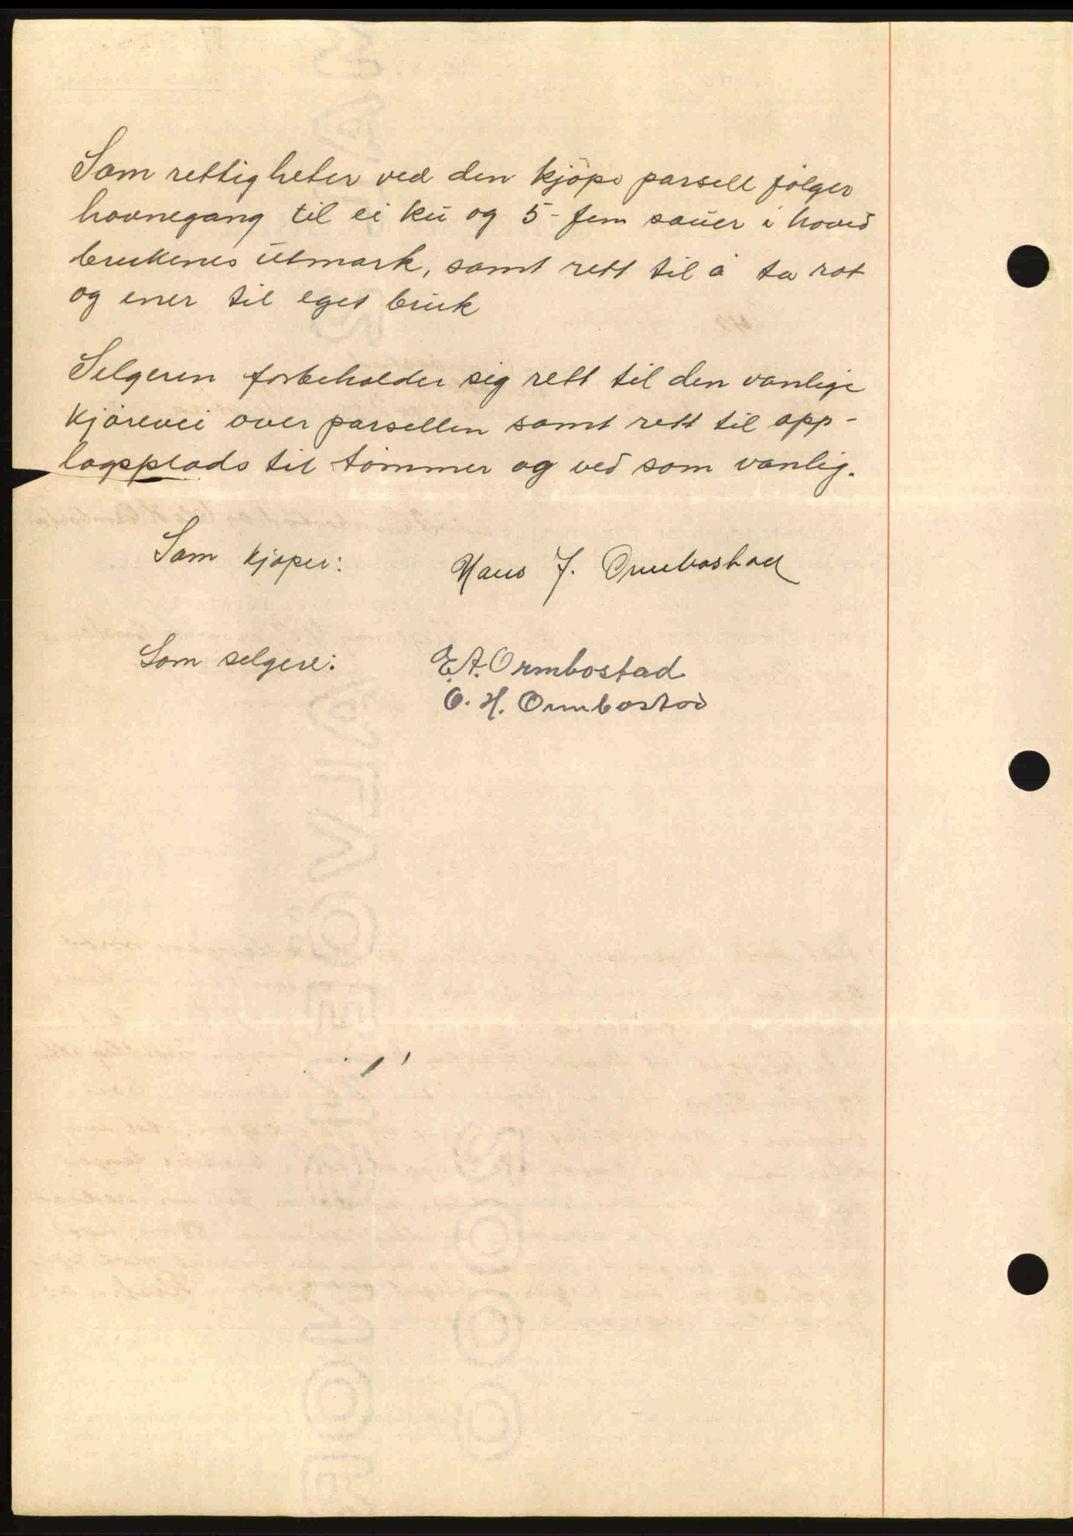 Som rettigheter ved den kjöpe parsell følger
havnegang til ei ku og 5 - fem sauer i hoved
brukenes utmark, samt rett til å ta rot
og ener til eget bruk
Selgeren forbeholder sig rett til den vanlige
kjörevei over parsellen samt rett til opp-
lagsplads til tömmer og ved som vanlig.
Som kjøper: Hans J. Ormbostad
Som selgere: E.A. Ormbostad
O. H. Ormbostad